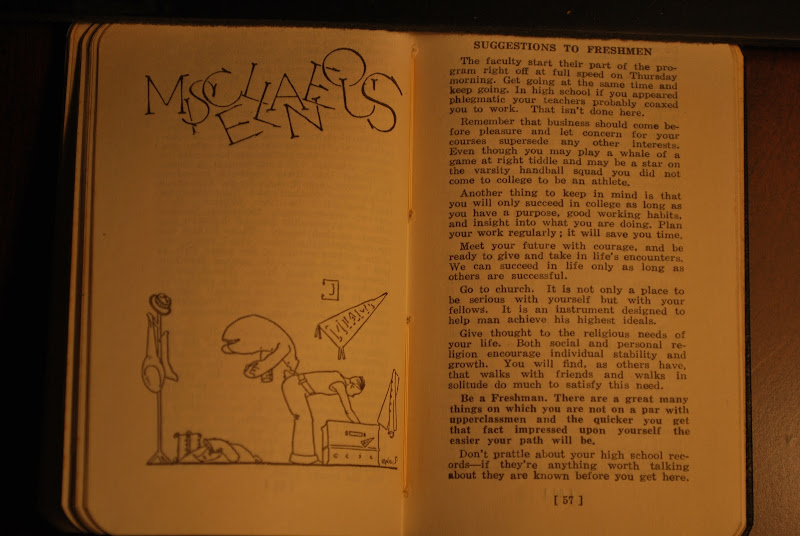 MISCELLANEOUS
SUGGESTIONS TO FRESHMEN
The faculty start their part of the pro-
gram right off at full speed on Thursday
morning. Get going at the same time and
keep going. In high school if you appeared
phlegmatic your teachers probably coaxed
you to work. That isn't done here.
Remember that business should come be-
fore pleasure and let concern for your
courses supersede any other interests.
Even though you may play a whale of a
game at right tiddle and may be a star on
the varsity handball squad you did not
come to college to be an athlete.
Another thing to keep in mind is that
you will only succeed in college as long as
you have a purpose, good working habits,
and insight into what you are doing. Plan
your work regularly; it will save you time.
Meet your future with courage, and be
ready to give and take in life's encounters.
We can succeed in life only as long as
others are successful.
Go to church. It is not only a place to
be serious with yourself but with your
fellows. It is an instrument designed to
help man achieve his highest ideals.
Give thought to the religious needs of
your life. Both social and personal re-
ligion encourage individual stability and
growth. You will find, as others have,
that walks with friends and walks in
solitude do much to satisfy this need.
Be a Freshman. There are a great many
things on which you are not on a par with
upperclassmen and the quicker you get
that fact impressed upon yourself the
easier your path will be.
Don't prattle about your high school rec-
ords—if they're anything worth talking
about they are known before you get here.
[ 57 ]